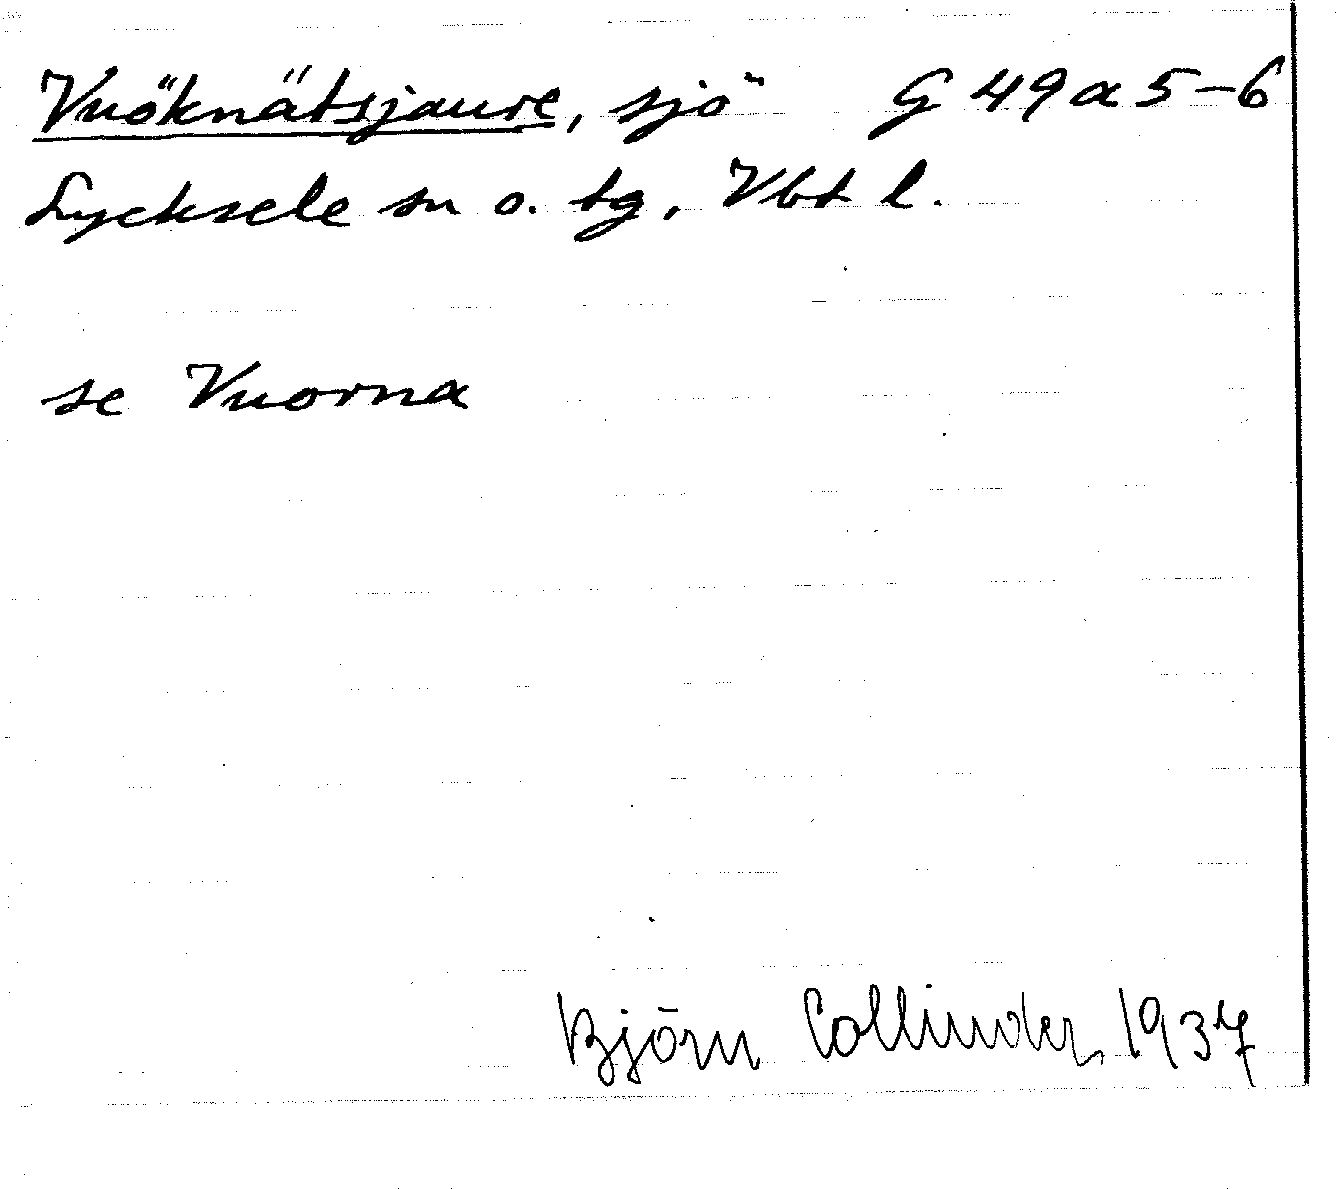 Vuöknätsjaure, sjö G 49 a 5-6
Lycksele sn o. tg, Vbt l.
se Vuorna
Björn Collinder 1937